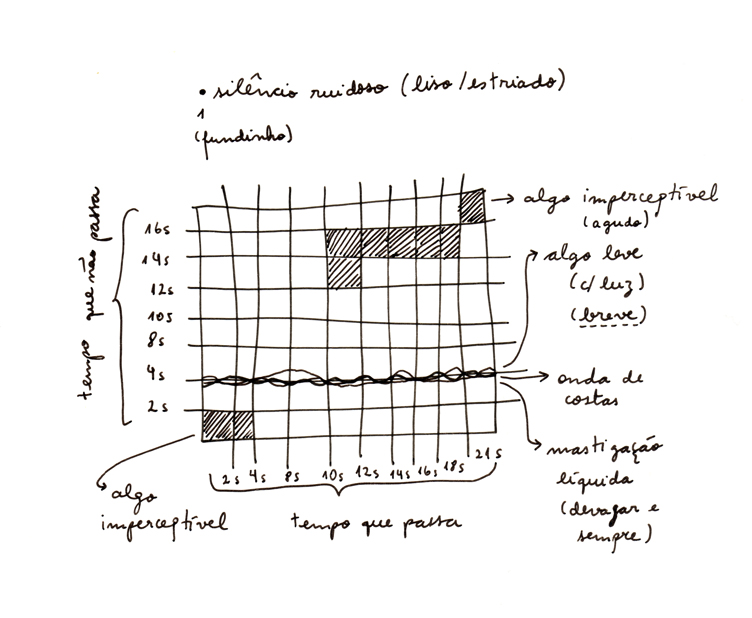 • silêncio ruidoso (liso/estriado)
1
(fundinho)
tempo que não passa
16s
14s
12s
10s
8s
4s
2s
→ algo imperceptível
(agudo)
algo leve
(c/ luz)
(breve)
onda de
costas
mastigação
líquida
(devagar e
sempre)
2s 4s 8s 10s 12s 14s 16s 18s 21s
algo
imperceptível
tempo que passa